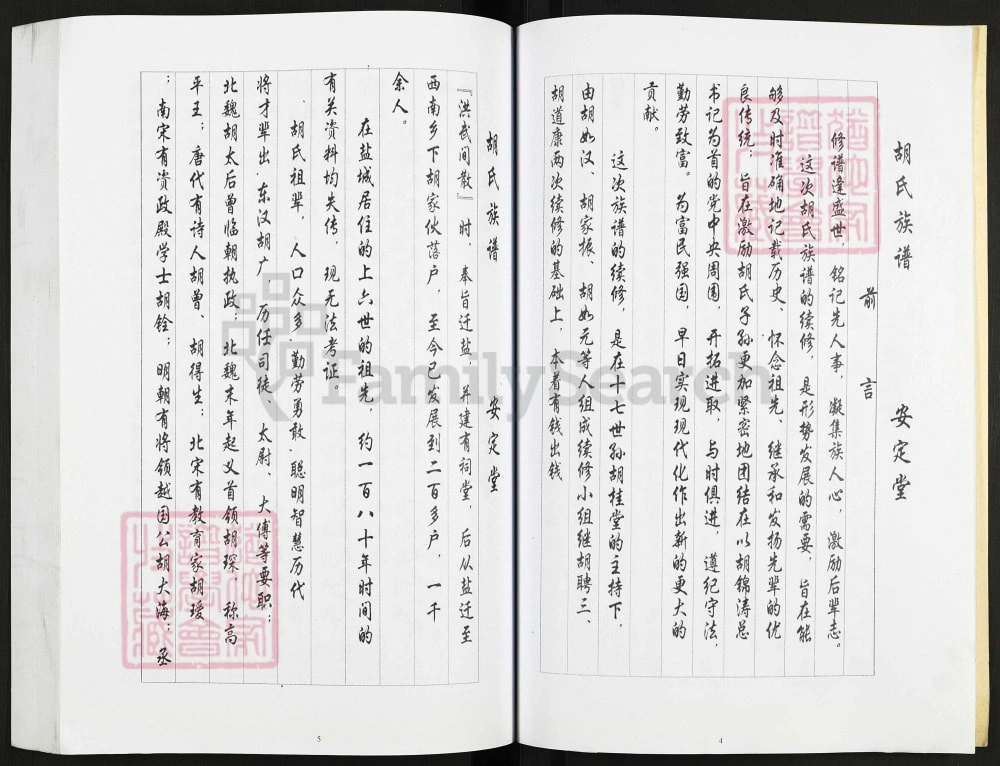 胡氏族谱 安定堂
前言
修谱逢盛世，铭记先人事，凝集族人心，激励后辈志。
这次胡氏族谱的续修，是形势发展的需要，旨在能
够及时准确地记载历史、怀念祖先、继承和发扬先辈的优
良传统；旨在激励胡氏子孙更加紧密地团结在以胡锦涛总
书记为首的党中央周围，开拓进取，与时俱进，遵纪守法，
勤劳致富。为富民强国，早日实现现代化作出新的更大的
贡献。
这次族谱的续修，是在十七世孙胡桂堂的主持下，
由胡如汉、胡家振、胡如元等人组成续修小组继胡聘三、
胡道康两次续修的基础上，本着有钱出钱
4
胡氏族谱 安定堂
『洪武间散』时，奉旨迁盐，并建有祠堂，后从盐迁至
西南乡下胡家伙落户，至今已发展到二百多户，一千
余人。
在盐城居住的上六世的祖先，约一百八十年时间的
有关资料均失传，现无法考证。
、胡氏祖辈，人口众多、勤劳勇敢、聪明智慧历代
将才辈出、东汉胡广，历任司徒、太尉、大傅等要职；
北魏胡太后曾临朝执政；北魏末年起义首领胡琛，称高
平王；唐代有诗人胡曾、胡得生；北宋有教育家胡瑗
；南宋有资政殿学士胡铨；明朝有将领越国公胡大海；丞
5
FamilySearch